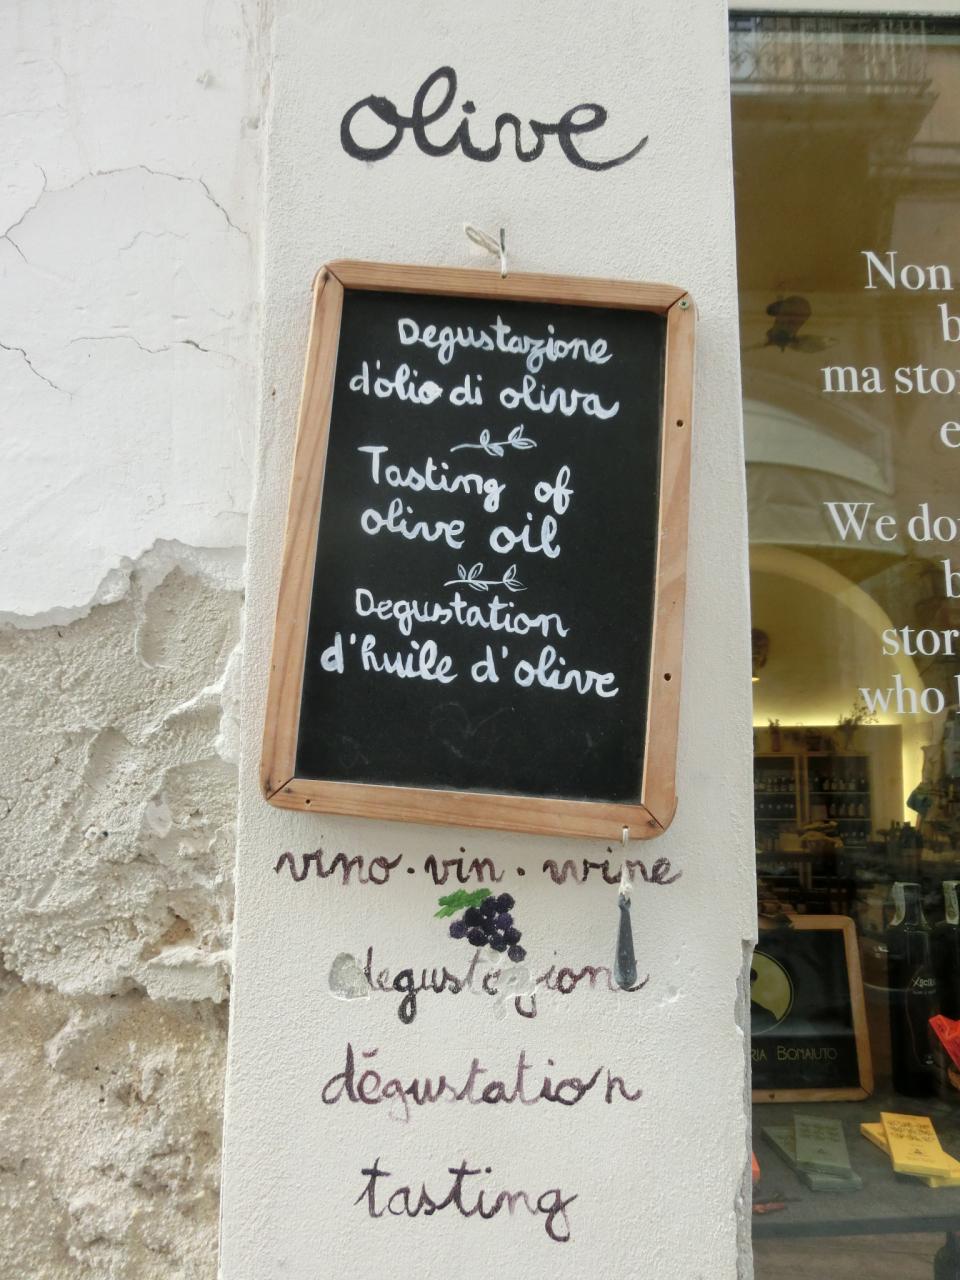 olive
Degustazione
d'olio di oliva
Tasting of
olive oil
Degustation
d'huile d'olive
vino · vin · wine
degustazione
dégustation
tasting
Non
ma
We
who
BONAIUTO